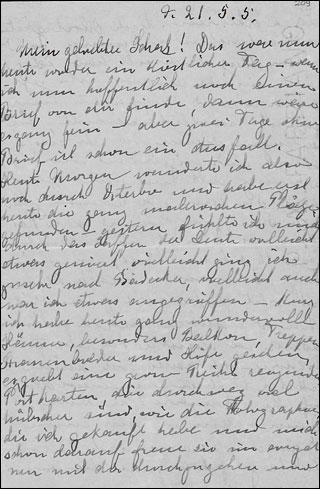 209
F. 21. 5. 5.
Mein geliebter Schatz! Das wäre nun
heute wieder ein köstlicher Tag – wenn
ich nun hoffentlich noch einen
Brief von dir finde, dann wäre
er ganz fein – aber zwei Tage ohne
Brief ist schon ein Ausfall.
Heute Morgen wanderte ich also
noch durch Viterbo und habe erst
heute die ganz malerischen Plätze
gefunden – gestern fühlte ich mich
durch das Gaffen der Leute vielleicht
etwas geniert vielleicht ging ich
zu sehr nach Bädecker, vielleicht auch
war ich etwas angegriffen – kurz
ich habe heute ganz wundervolle
besonders Balkon, Treppen
und Höfe gesehen,
eine ganze Reihe reizende
Postkarten, die durchweg viel
hübscher sind, wie die Photographien
die ich gekauft habe und mich
schon darauf freue sie im
mit dir durchzugehen und